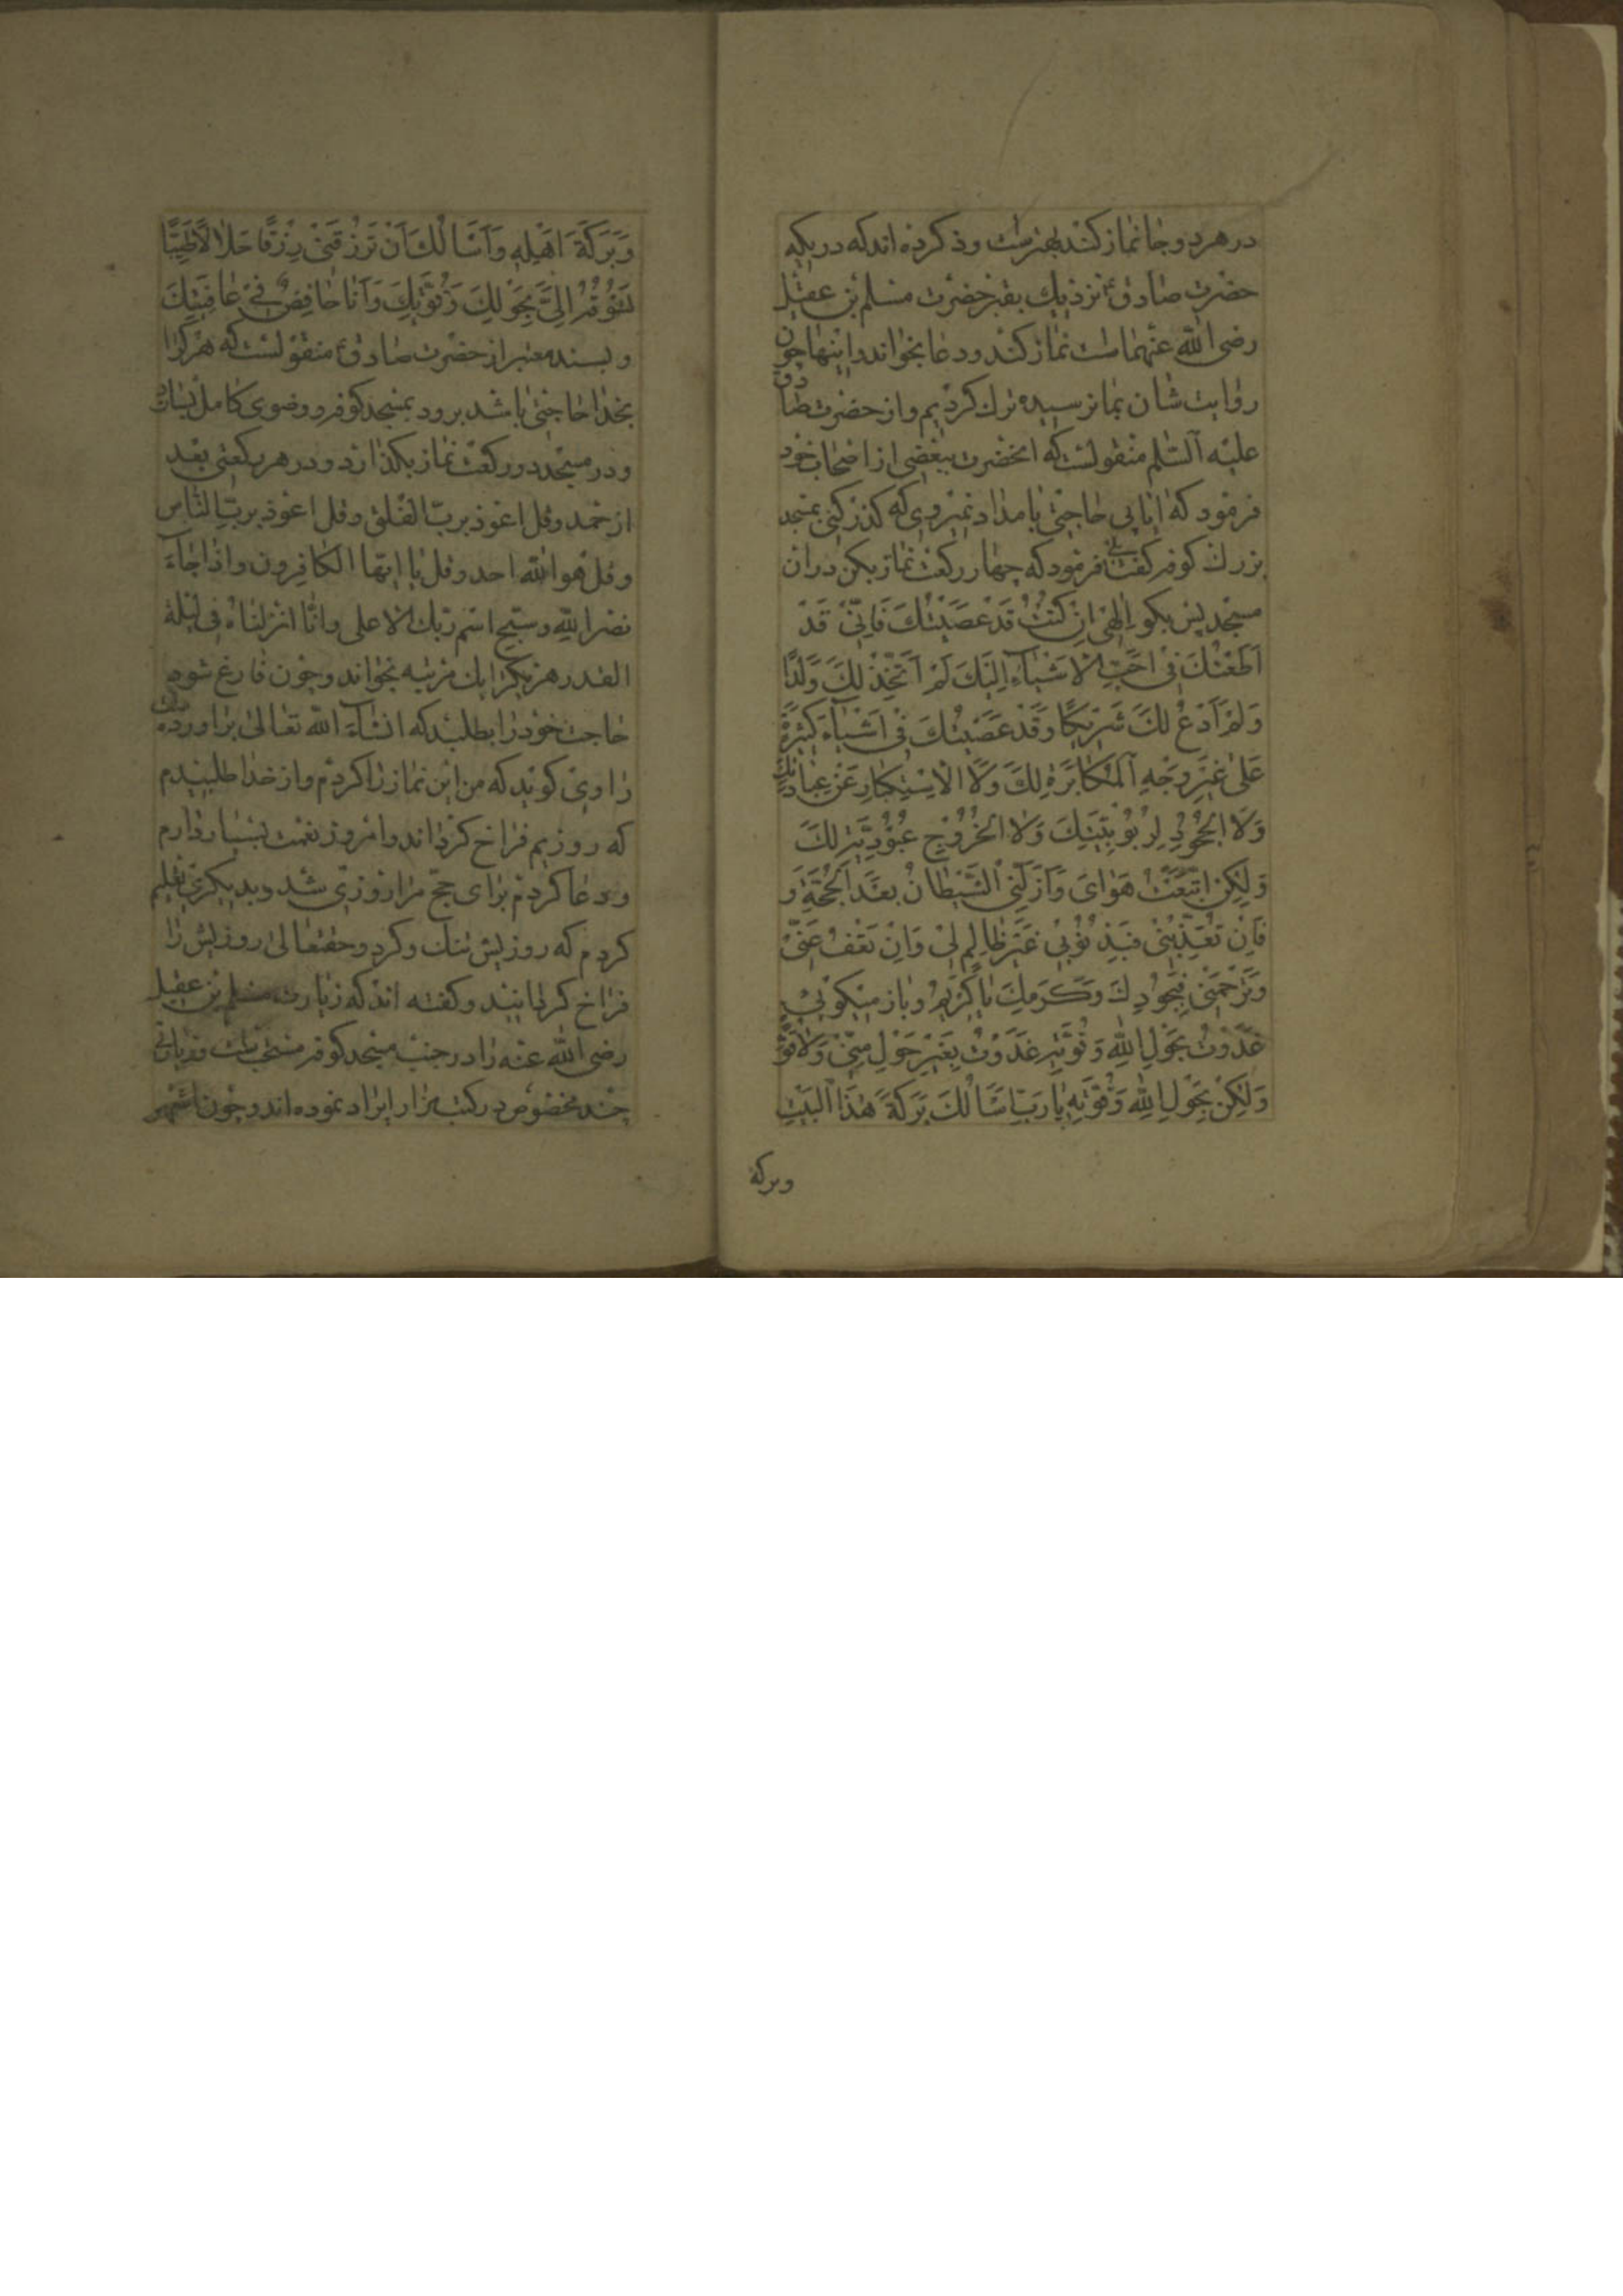 در هر دو جا نماز کنند بهتر است و ذکر کرده اند که در تکیه
حضرت صادق ؑ نزدیك بقبر حضرت مسلم بن عقیل
رضی الله عنهما است نماز کنند ودعا بخوانند و اینها چون
روایت شان بما نرسیده ترك کردیم و از حضرت صادق
علیه السلم منقولست که انحضرت ببعضی از اصحاب خود
فرمود که ایا پی حاجتی بامداد نمیروی که کذر کنی بمسجد
بزرك کوفه کفت بلی فرمود که چهار رکعت نماز بکن در ان
مسجد پس بکو اِلٰهی اِنْ کُنْتُ قَدْ عَصَیْتُكَ فَاِنّی قَدْ
اَطَعْتُكَ فی اَحَبِّ الْاَشْیاءِ اِلَیْكَ لَمْ اَتَّخِذْ لَكَ وَلَدًا
وَلَمْ اَدْعُ لَكَ شَریکًا وَقَدْ عَصَیْتُكَ فی اَشْیاءَ کَثیرَةٍ
عَلیٰ غَیْرِ وَجْهِ الْمُکابَرَةِ لَكَ وَلَا الْاِسْتِکْبارِ عَنْ عِبادَتِكَ
وَلَا الْجُحُودِ لِرُبُوبِیَّتِكَ وَلَا الْخُرُوجِ عُبُودِیَّةِ لَكَ
وَلٰکِنِ اتَّبَعْتُ هَوٰایَ وَاَزَلَّنِی الشَّیْطانُ بَعْدَ الْحُجَّةِ وَ
فَاِنْ تُعَذِّبْنی فَبِذُنُوبی غَیْرَ ظالِمٍ لی وَاِنْ تَعْفُ عَنّی
وَتَرْحَمْنی فَبِجُودِكَ وَکَرَمِكَ یا کَریمُ و باز میکویی
غَدَوْتُ بِحَوْلِ اللهِ وَقُوَّتِهِ غَدَوْتُ بِغَیْرِ حَوْلٍ مِنّی وَلا قُوَّةٍ
وَلٰکِنْ بِحَوْلِ اللهِ وَقُوَّتِهِ یا رَبِّ اَسْاَلُكَ بَرَکَةَ هٰذَا الْبَیْتِ
وبرکة
وَبَرَکَةَ اَهْلِهِ وَاَسْاَلُكَ اَنْ تَرْزُقَنی رِزْقًا حَلالًا طَیِّبًا
تَسُوقُهُ اِلَیَّ بِحَوْلِكَ وَقُوَّتِكَ وَاَنَا خافِضٌ فی عافِیَتِكَ
و بسند معتبر از حضرت صادق ؑ منقولست که هر کرا
بخدا حاجتی باشد برود بمسجد کوفه و وضوی کامل بسازد
و در مسجد دو رکعت نماز بکذارد و در هر رکعتی بعد
از حمد و قل اعوذ برب الفلق و قل اعوذ برب الناس
و قل هو الله احد و قل یا ایها الکافرون و اذا جاء
نصر الله و سبح اسم ربك الاعلی و انا انزلناه فی لیلة
القدر هر یکرا یك مرتبه بخواند و چون فارغ شود
حاجت خود را بطلبد که انشاء الله تعالی براورده
راوی کوید که من این نماز را کردم و از خدا طلبیدم
که روزیم فراخ کرداند و امروز نعمت بسیار دارم
و دعا کردم برای حج مرا روزی شد و بدیکری تعلیم
کردم که روزیش تنك و کرد و حقتعالی روزیش را
فراخ کردانید و کفته اند که زیارت مسلم بن عقیل
رضی الله عنه را در جنب مسجد کوفه مستحب است و زیارتی
چند مخصوص در کتب مزار ایراد نموده اند و چون